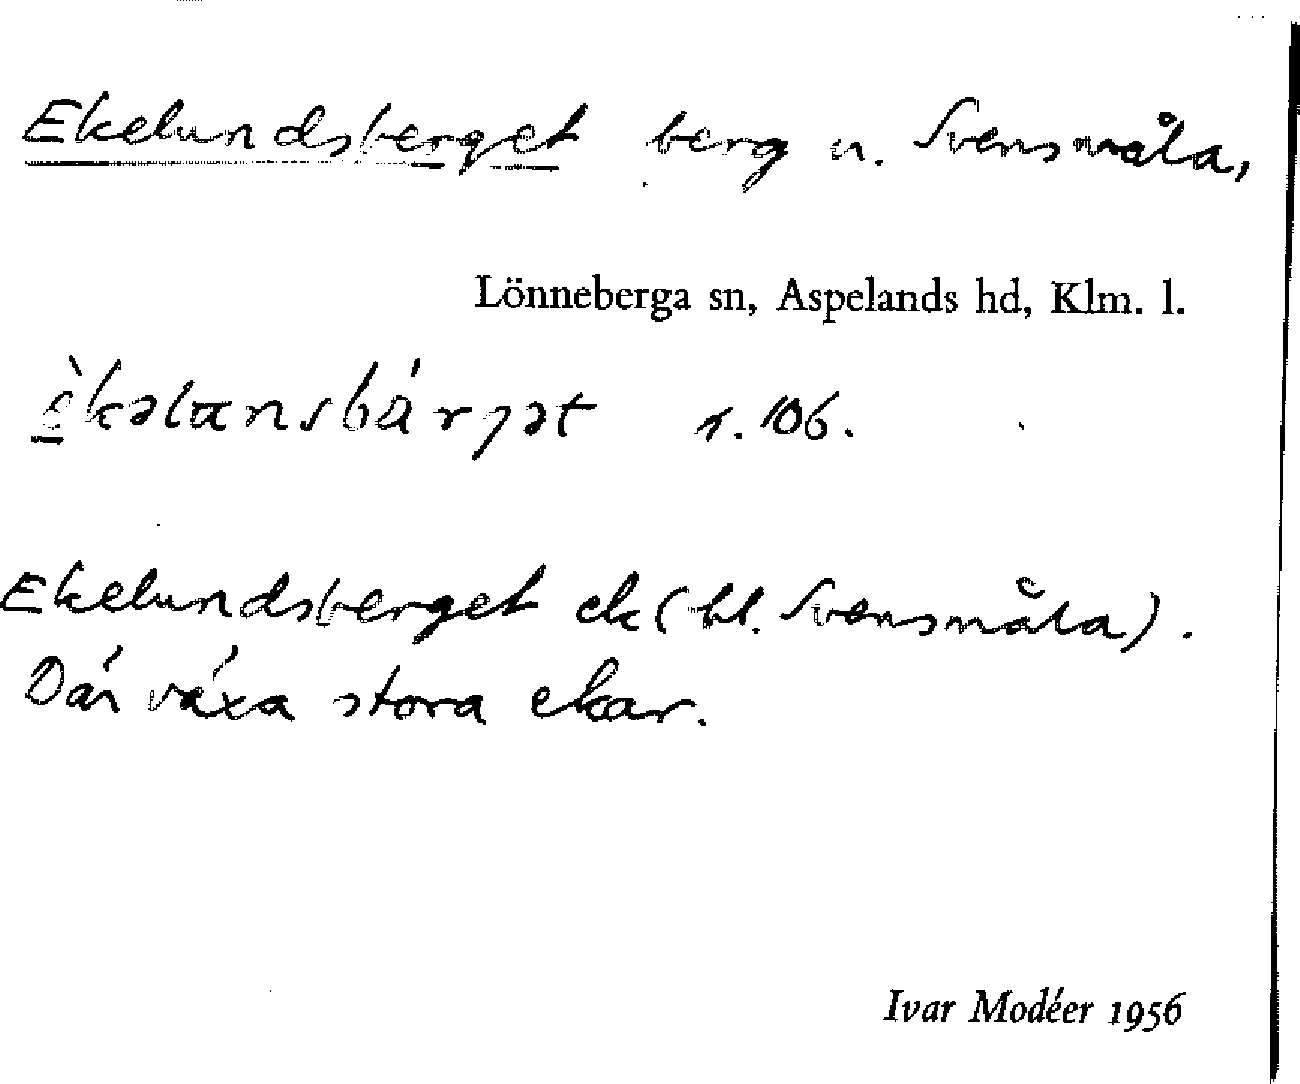 Ekelundsberget berg n. Svensmåla,
Lönneberga sn, Aspelands hd, Klm. l.
s. 106.
Ekelundsberget ek (bl. Svensmåla).
Där växa stora ekar.
Ivar Modéer 1956